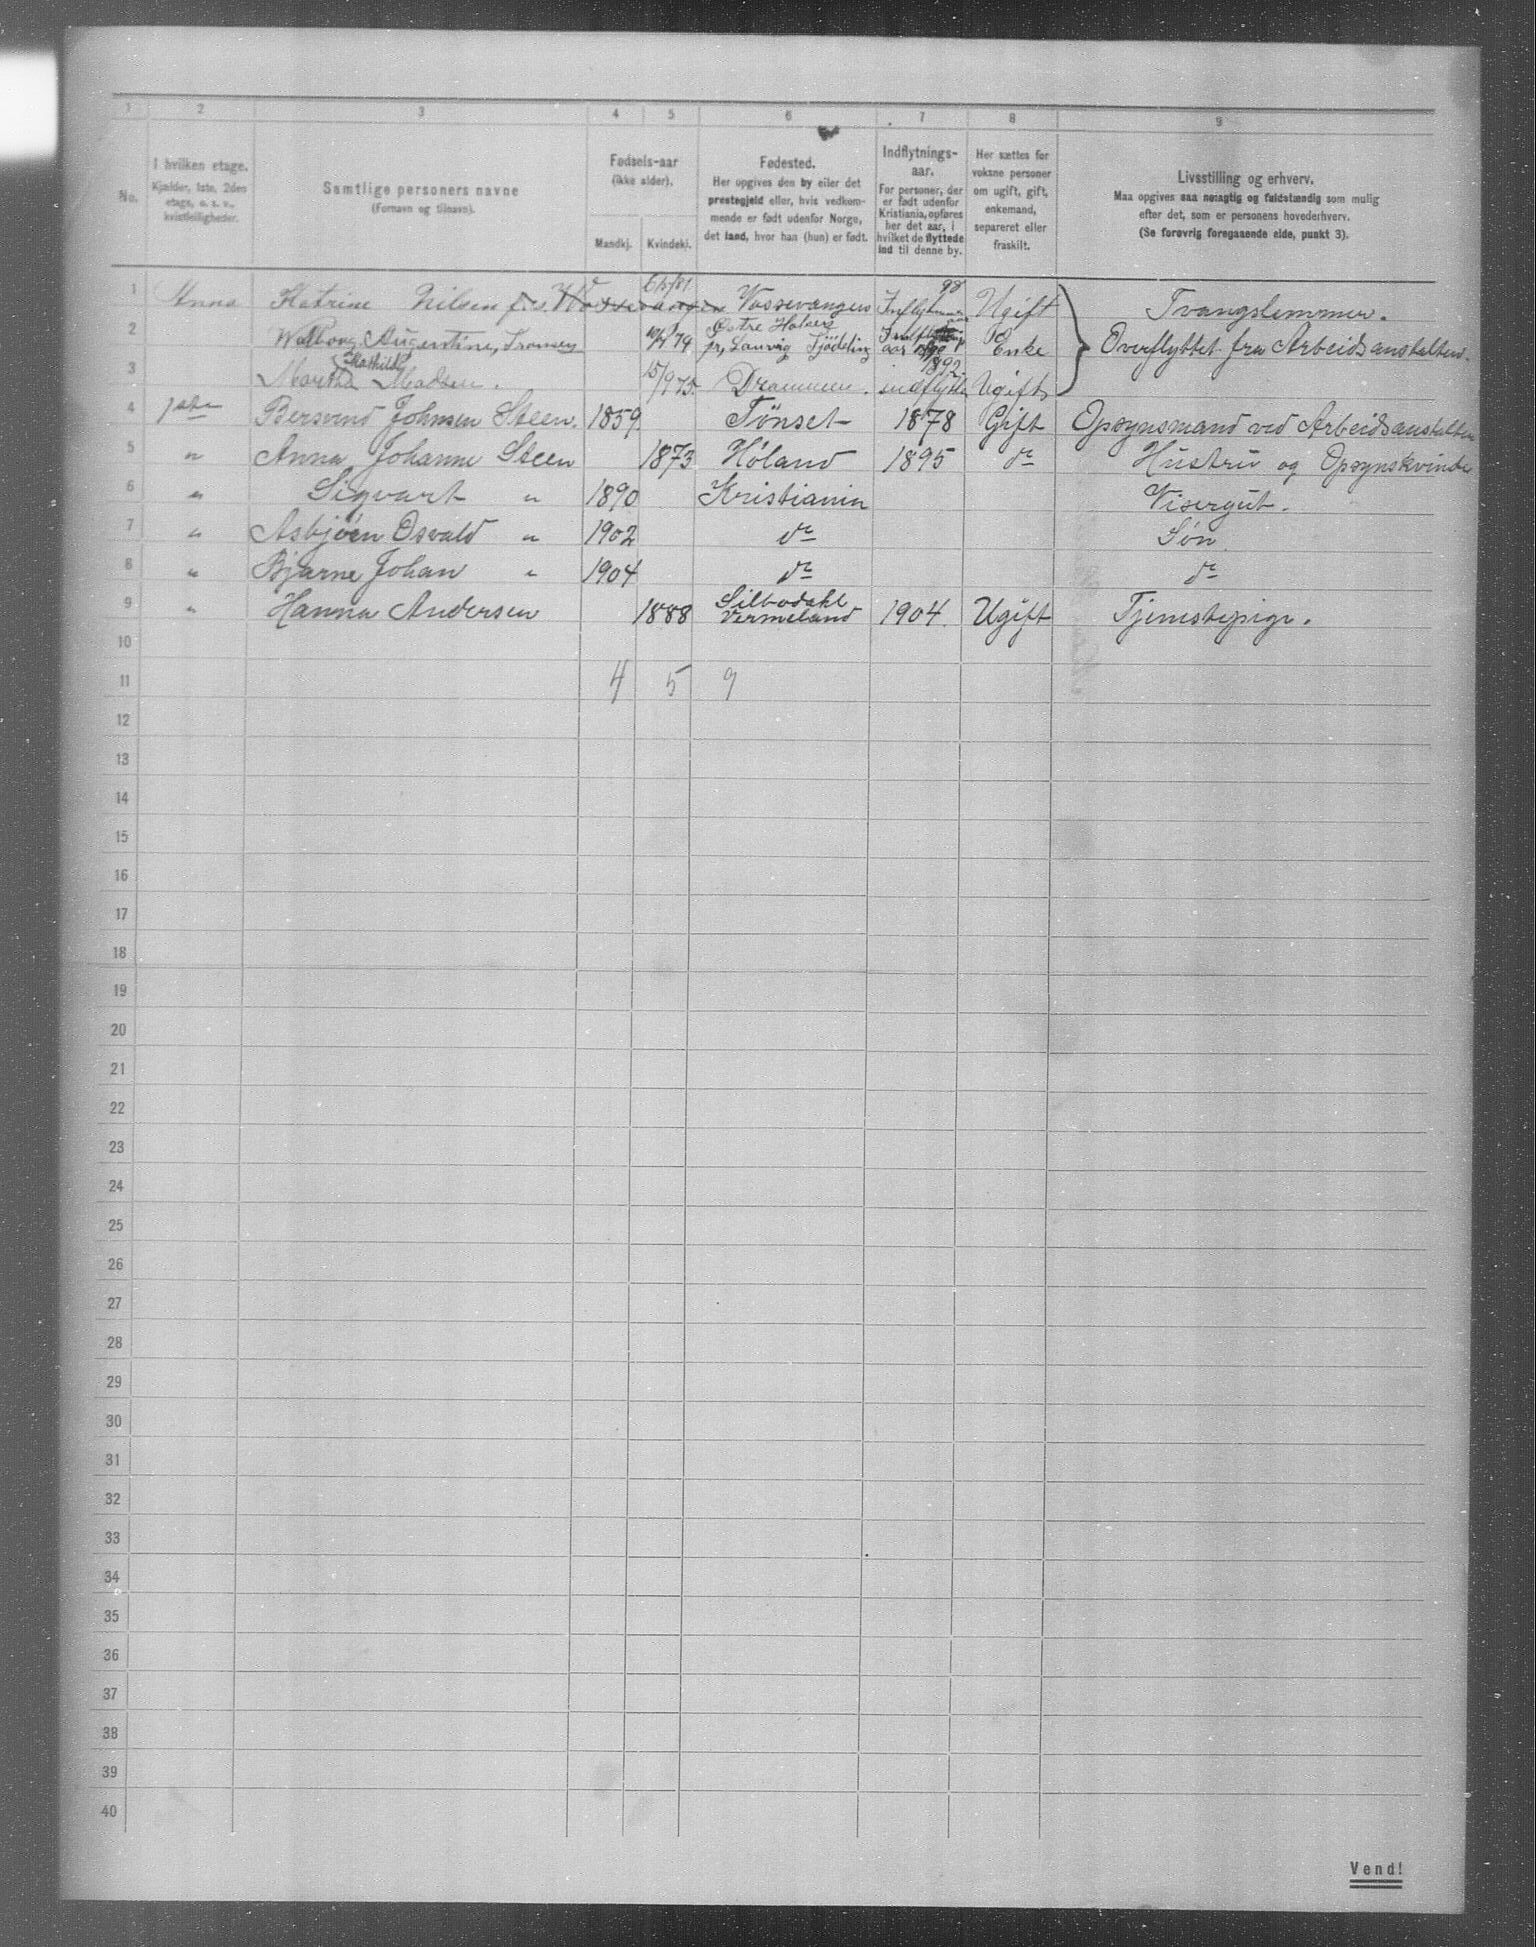 1 2 3 4 5 6 7 8 9
No.
I hvilken etage.
Kjælder, 1ste, 2den
etage, o. s. v.,
kvistleiligheder.
Samtlige personers navne
(Fornavn og tilnavn).
Fødsels-aar
(ikke alder).
Mandkj. Kvindekj.
Fødested.
Her opgives den by eller det
prestegjeld eller, hvis vedkom-
mende er født udenfor Norge,
det land, hvor han (hun) er født.
Indflytnings-
aar.
For personer, der
er født udenfor
Kristiania, opføres
her det aar, i
hvilket de flyttede
ind til denne by.
Her sættes for
voksne personer
om ugift, gift,
enkemand,
separeret eller
fraskilt.
Livsstilling og erhverv.
Maa opgives saa nøiagtig og fuldstændig som mulig
efter det, som er personens hovederhverv.
(Se forøvrig foregaaende side, punkt 3).
1 Anna Katrine Nilsen 6/5/81 Vossevangen 98 Ugift Tvangslemmer.
2 Augustine, Østre Halsen pr, Laurvig Tjödeling aar Enke Overflyttet fra Arbeidsanstalten.
3 Martha Mathilde Madsen. 15/9 75. Drammen. 1892 indflytte Ugift
4 1ste Bersvend Johnsen Steen. 1859 Tönset 1878 Gift Opsynsmand ved Arbeidsanstalten
5 " Anna Johanne Steen 1873 Høland 1895 do Hustru og Opsynskvinde
6 " Sigvart " 1890 Kristiania Visergut.
7 " Asbjörn Osvald " 1902 do Søn.
8 " Bjarne Johan " 1904 do do
9 " Hanna Andersen 1888 Silbodahl Vermeland 1904. Ugift Tjenestepige.
10
11 4 5 9
12
13
14
15
16
17
18
19
20
21
22
23
24
25
26
27
28
29
30
31
32
33
34
35
36
37
38
39
40
Vend!